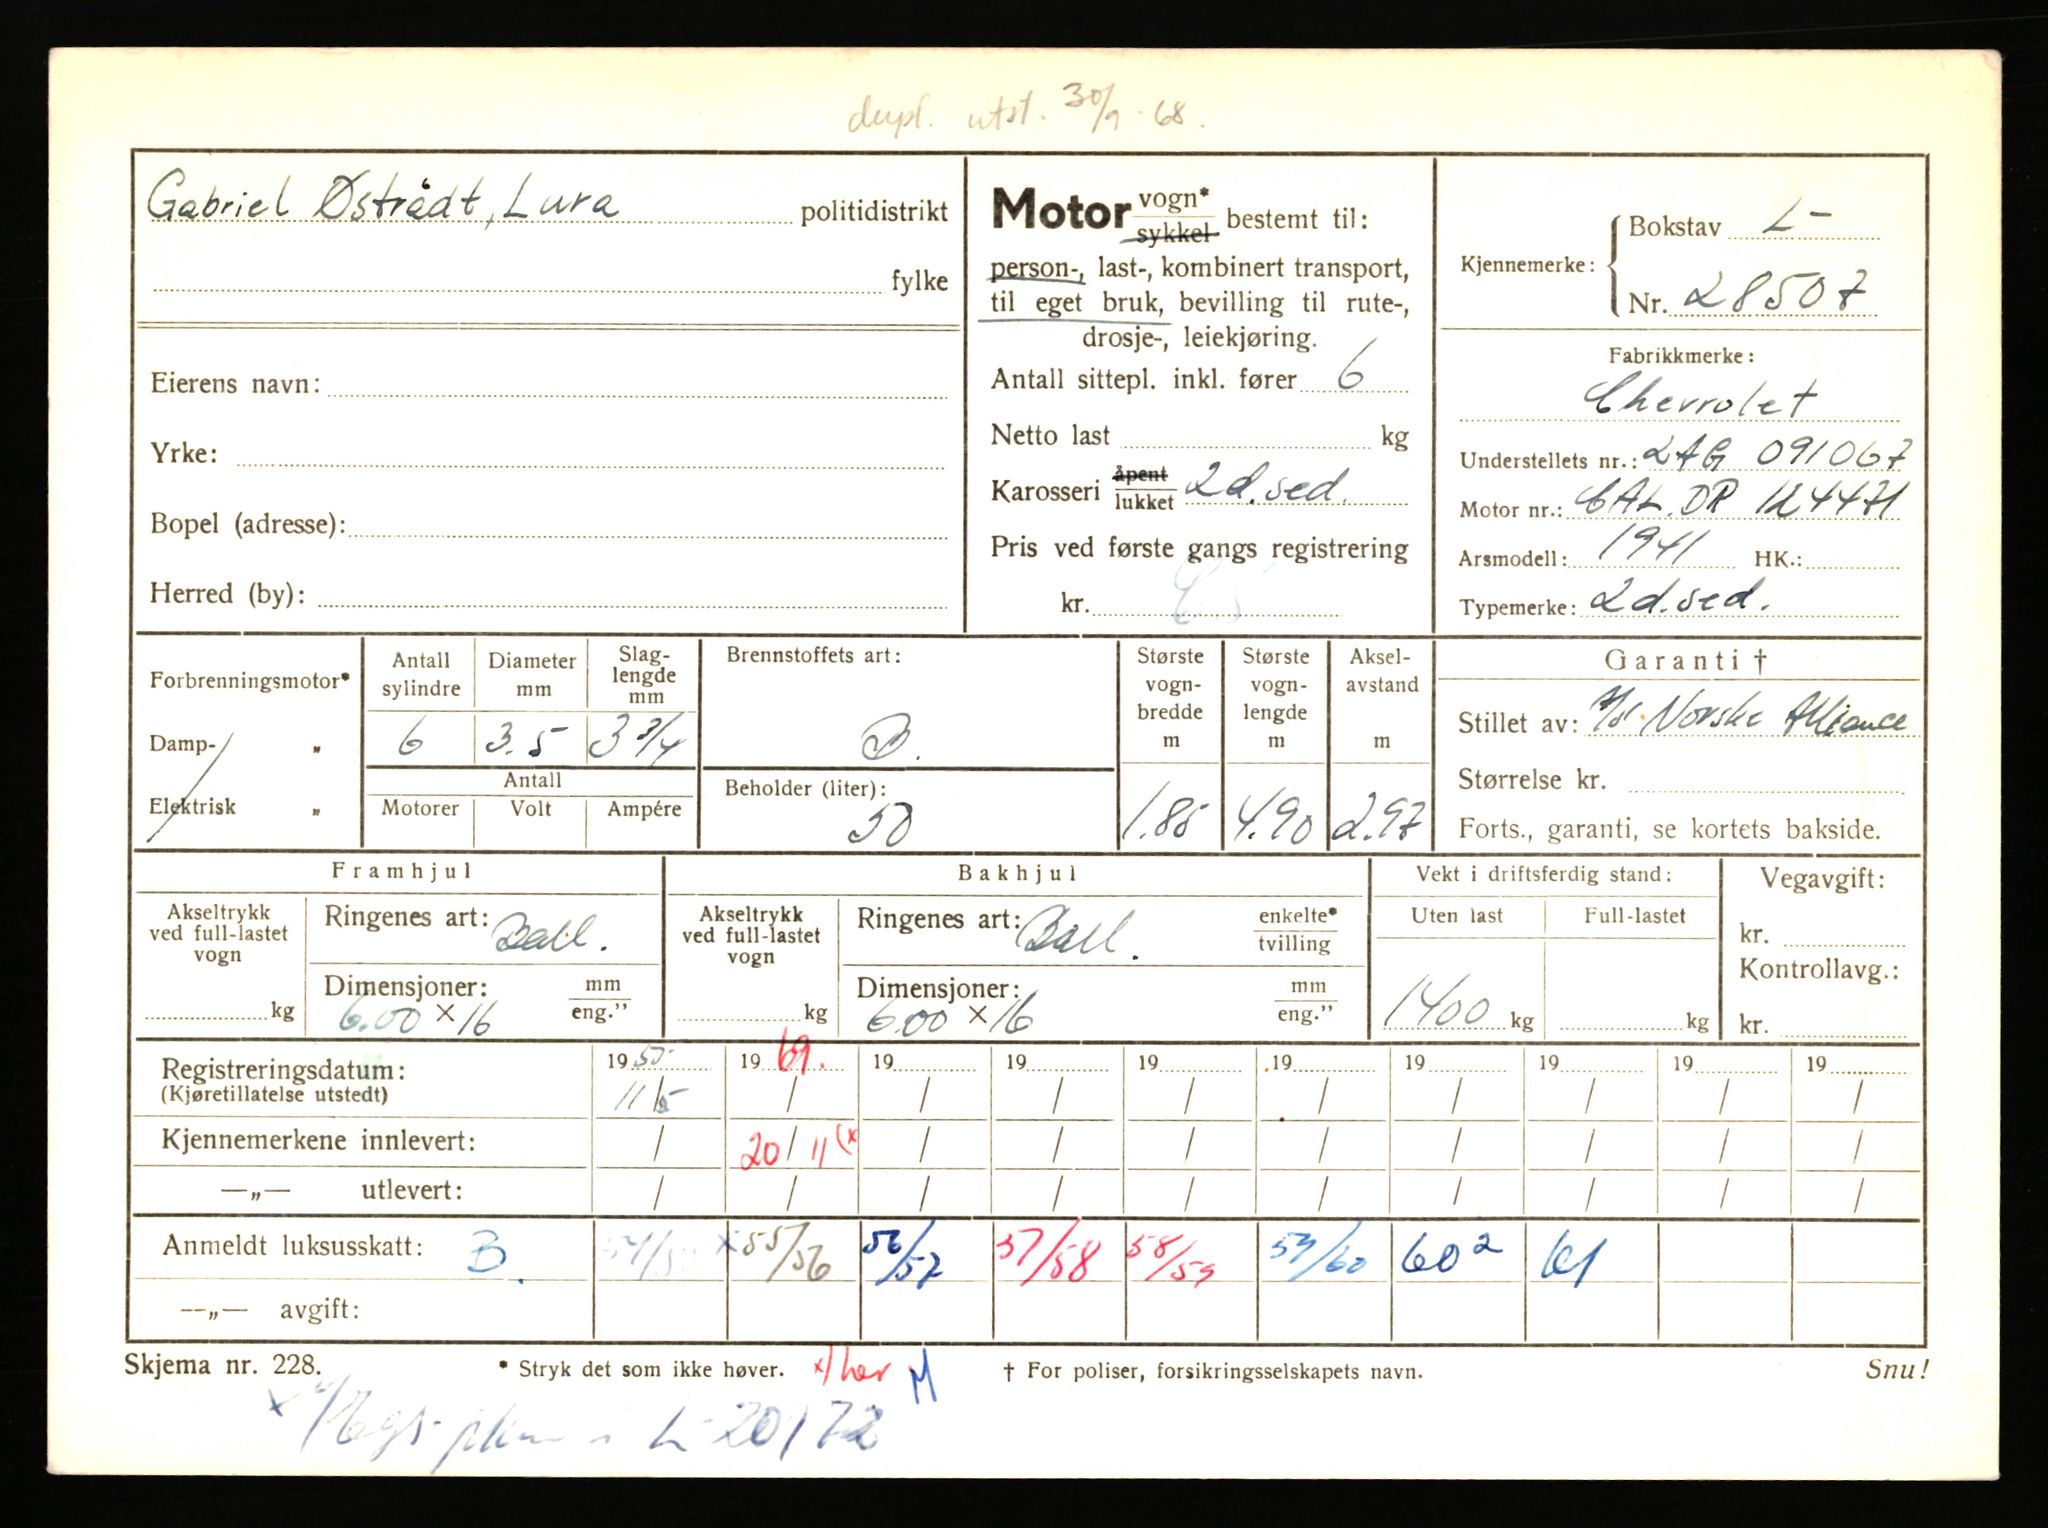 dupl. utst. 30/9-68.
Gabriel Østrådt, Lura politidistrikt
fylke
Eierens navn:
Yrke:
Bopel (adresse):
Herred (by):
Motor vogn* sykkel bestemt til:
person-, last-, kombinert transport,
til eget bruk, bevilling til rute-,
drosje-, leiekjøring.
Antall sittepl. inkl. fører 6
Netto last kg
Karosseri åpent lukket 2d. sed.
Pris ved første gangs registrering
kr.
Kjennemerke: Bokstav L-
Nr. 28507
Fabrikkmerke:
Chevrolet
Understellets nr.: 2AG 091067
Motor nr.:
Arsmodell: 1941 HK.:
Typemerke: 2d. sed.
Forbrenningsmotor*
Damp- „
Elektrisk „
Antall sylindre 6
Diameter mm 3.5
Slag-lengde mm 3 3/4
Antall
Motorer Volt Ampére
Brennstoffets art:
B.
Beholder (liter):
50
Største vogn-bredde m 1.85
Største vogn-lengde m 4.90
Aksel-avstand m 2.97
Garanti †
Stillet av: Norske Alliance
Størrelse kr.
Forts., garanti, se kortets bakside.
Framhjul
Akseltrykk ved full-lastet vogn kg
Ringenes art: Ball.
Dimensjoner: mm eng.”
6.00 × 16
Bakhjul
Akseltrykk ved full-lastet vogn kg
Ringenes art: Ball. enkelte* tvilling
Dimensjoner: mm eng.”
6.00 × 16
Vekt i driftsferdig stand:
Uten last Full-lastet
1400 kg kg
Vegavgift:
kr.
Kontrollavg.:
kr.
Registreringsdatum: 1955 1969. 19 19 19 19 19 19 19 19
(Kjøretillatelse utstedt) 11/5 / / / / / / / / /
Kjennemerkene innlevert: / 20/11 (x / / / / / / / /
—„— utlevert: / / / / / / / / / /
Anmeldt luksusskatt: B. 54/5 x 55/56 56/57 57/58 58/59 59/60 60² 61
—„— avgift:
Skjema nr. 228. * Stryk det som ikke høver. x/ her M † For poliser, forsikringsselskapets navn. Snu!
L-20172